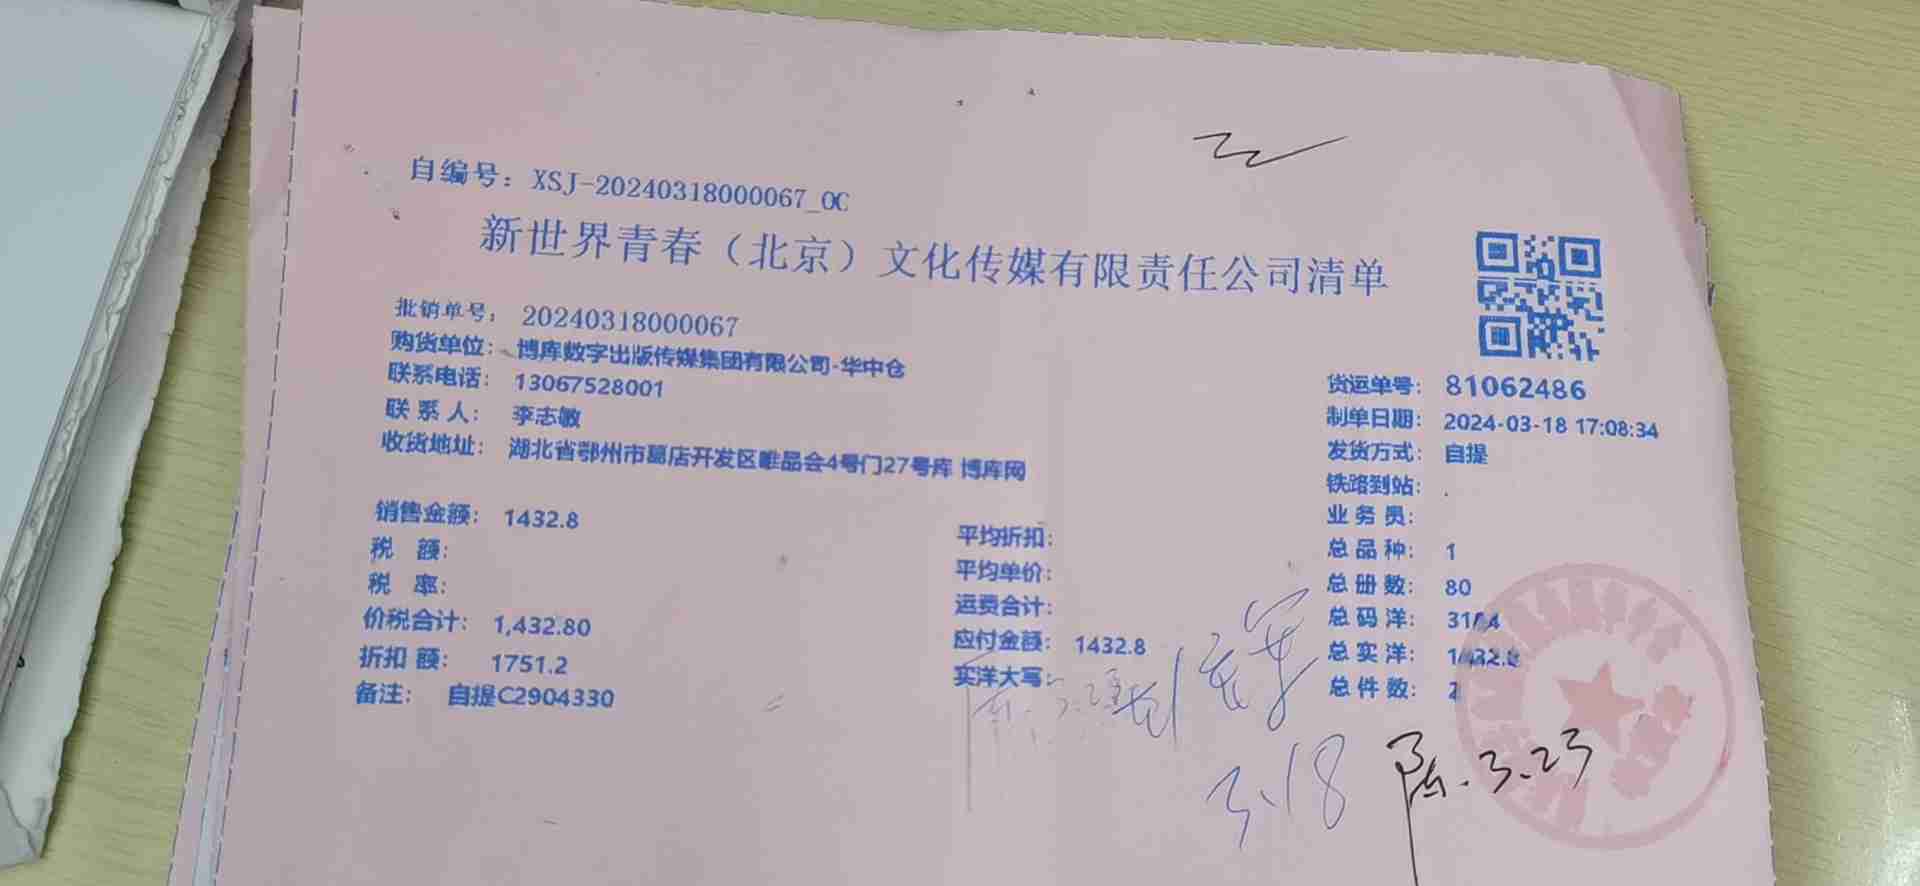 自编号：XSJ-20240318000067_OC
新世界青春（北京）文化传媒有限责任公司清单
批销单号：20240318000067
购货单位：博库数字出版传媒集团有限公司-华中仓
联系电话：13067528001
联系人：李志敏
收货地址：湖北省鄂州市葛店开发区唯品会4号门27号库 博库网
货运单号：81062486
制单日期：2024-03-18 17:08:34
发货方式：自提
铁路到站：.
业务员：
总品种：1
总册数：80
总码洋：3184
总实洋：1432.8
总件数：2
销售金额：1432.8
税 额：
税 率：
价税合计：1,432.80
折扣额：1751.2
备注：自提C2904330
平均折扣：
平均单价：
运费合计：
应付金额：1432.8
实洋大写：
3.18
陈.3.23